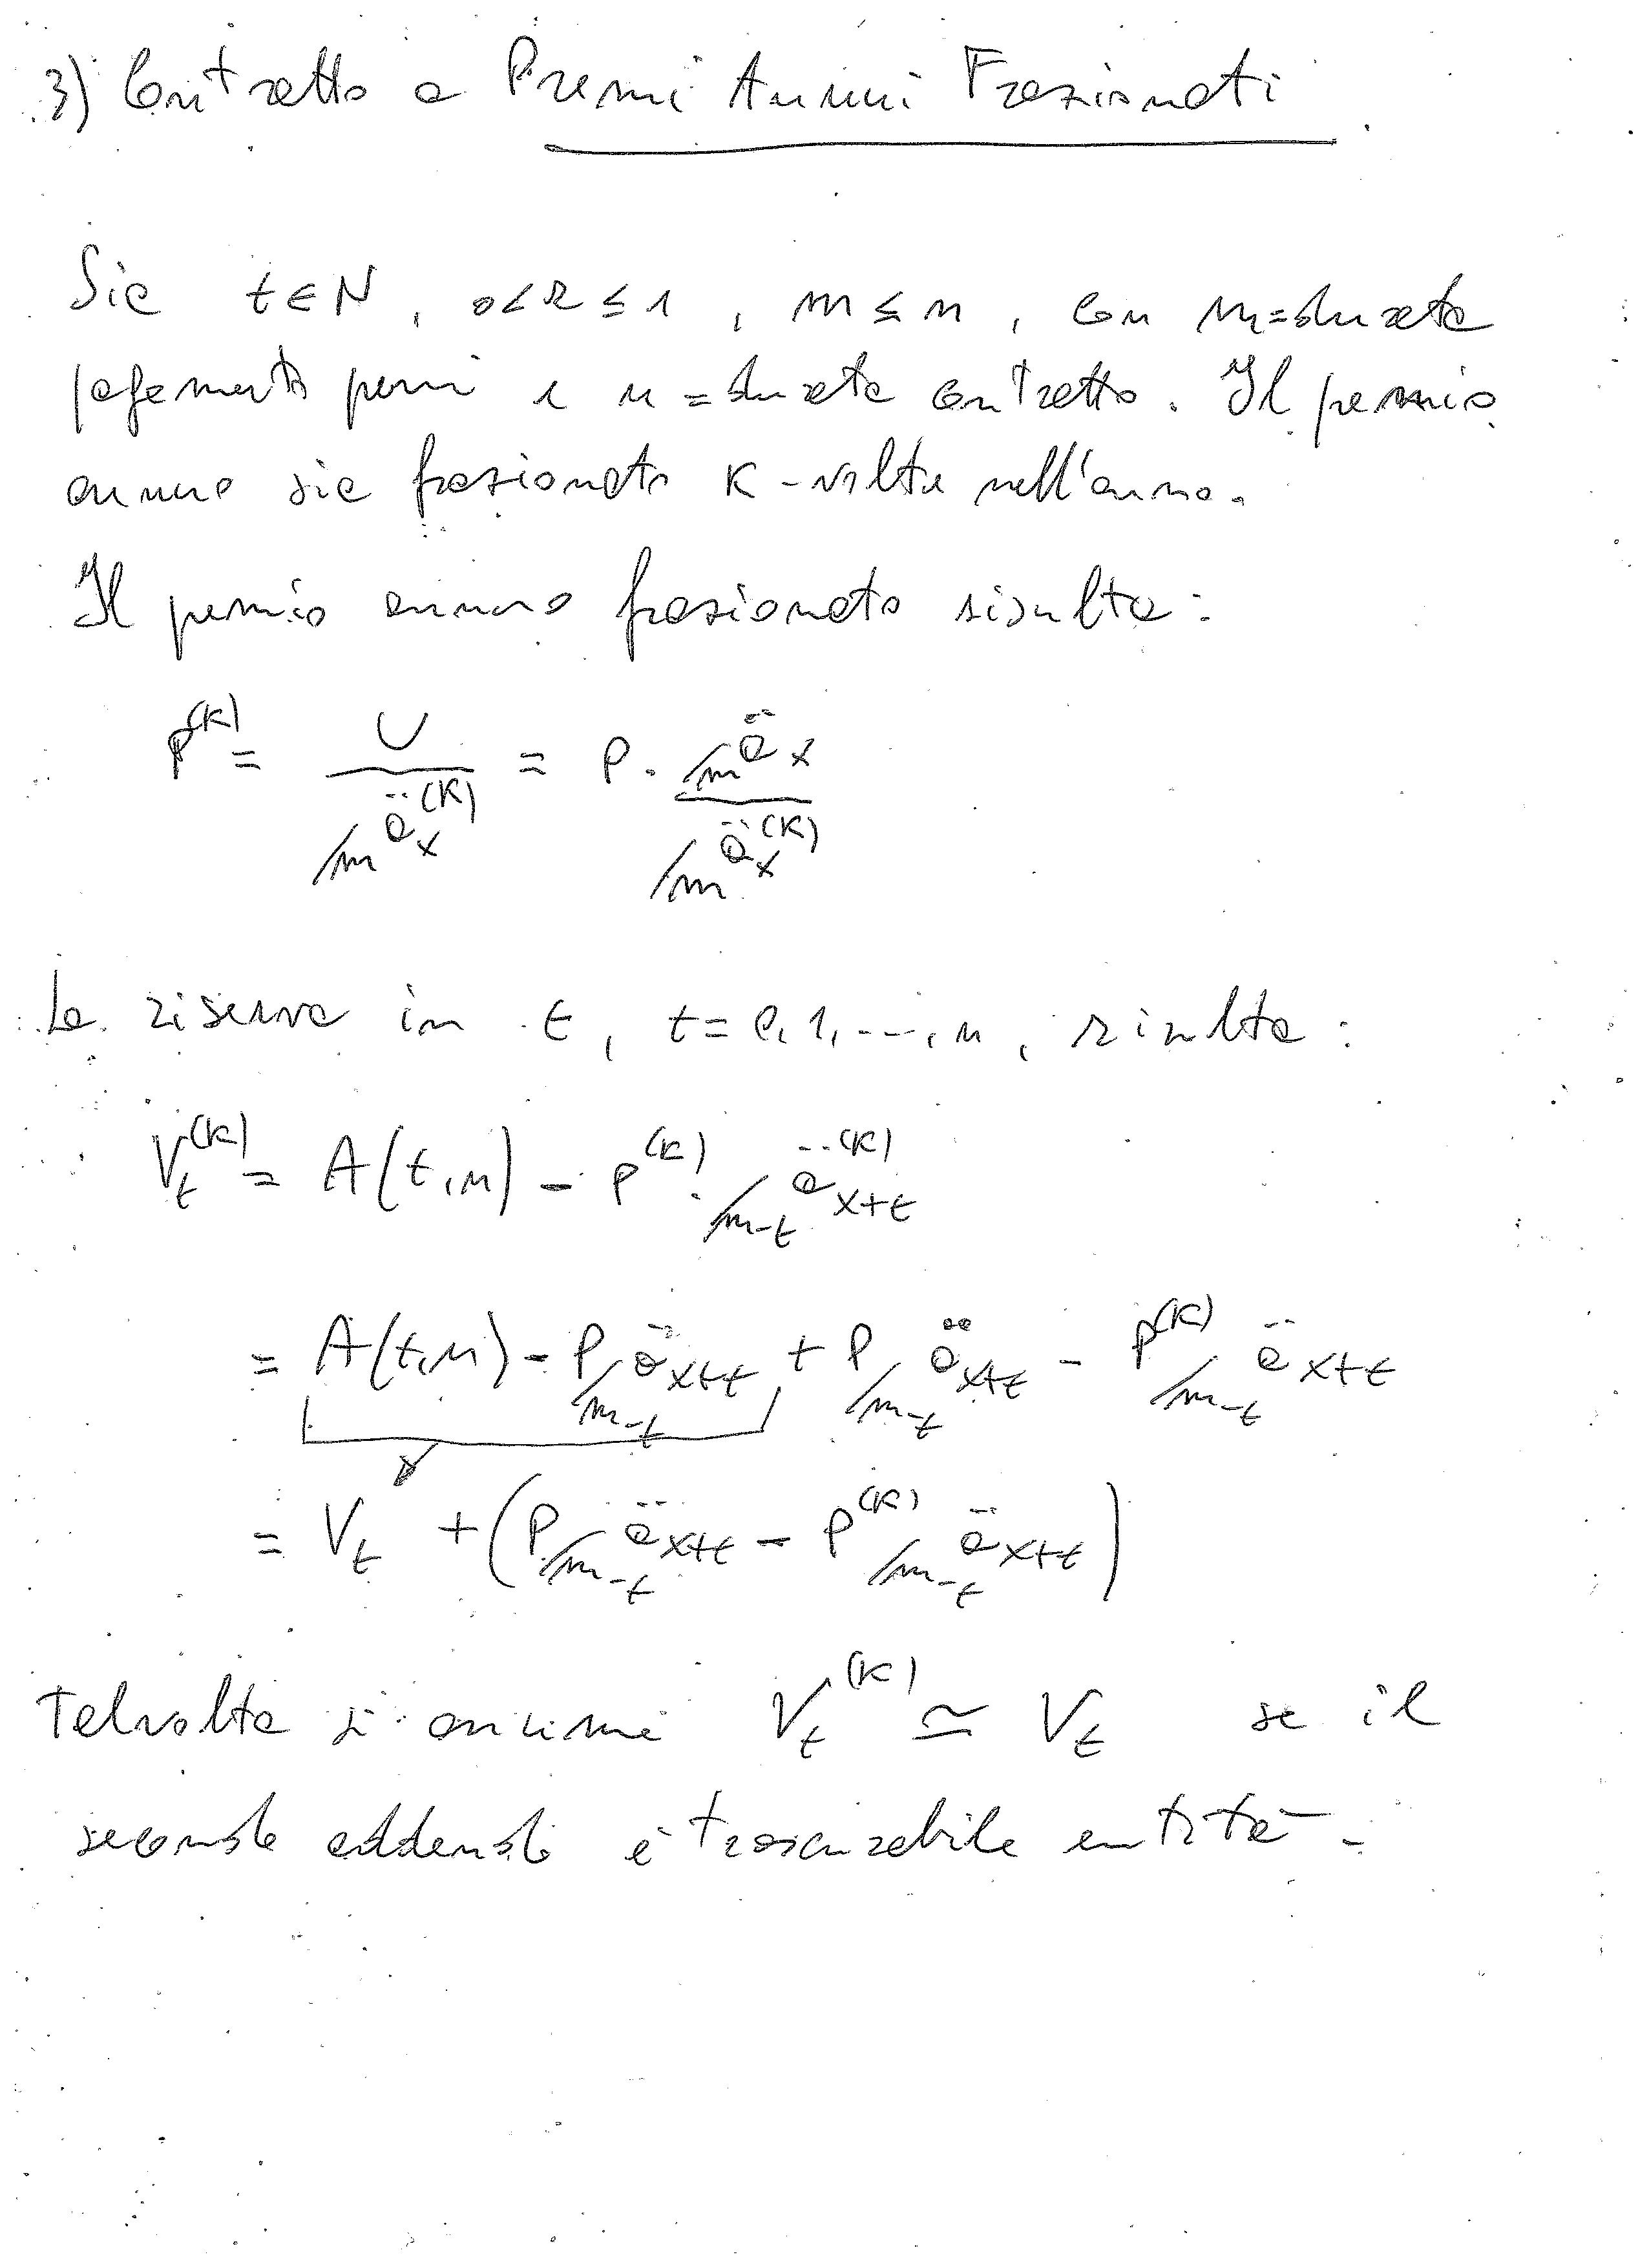 3) Contratto a Premi Annui Frazionati
Sia t ∈ N, 0 < r ≤ 1, m ≤ n, con m = durata
pagamenti premi e n = durata contratto. Il premio
annuo sia frazionato k-volte nell'anno.
Il premio annuo frazionato risulta:
P^(k) = U / /m ä_x^(k) = P · /m ä_x / /m ä_x^(k)
La riserva in t, t = 0, 1, ..., n, risulta:
V_t^(k) = A(t, n) - P^(k) · /m-t ä_x+t^(k)
= A(t, n) - P /m-t ä_x+t + P /m-t ä_x+t - P^(k) /m-t ä_x+t
= V_t + (P /m-t ä_x+t - P^(k) /m-t ä_x+t)
Talvolta si assume V_t^(k) ≃ V_t se il
secondo addendo è trascurabile entità.